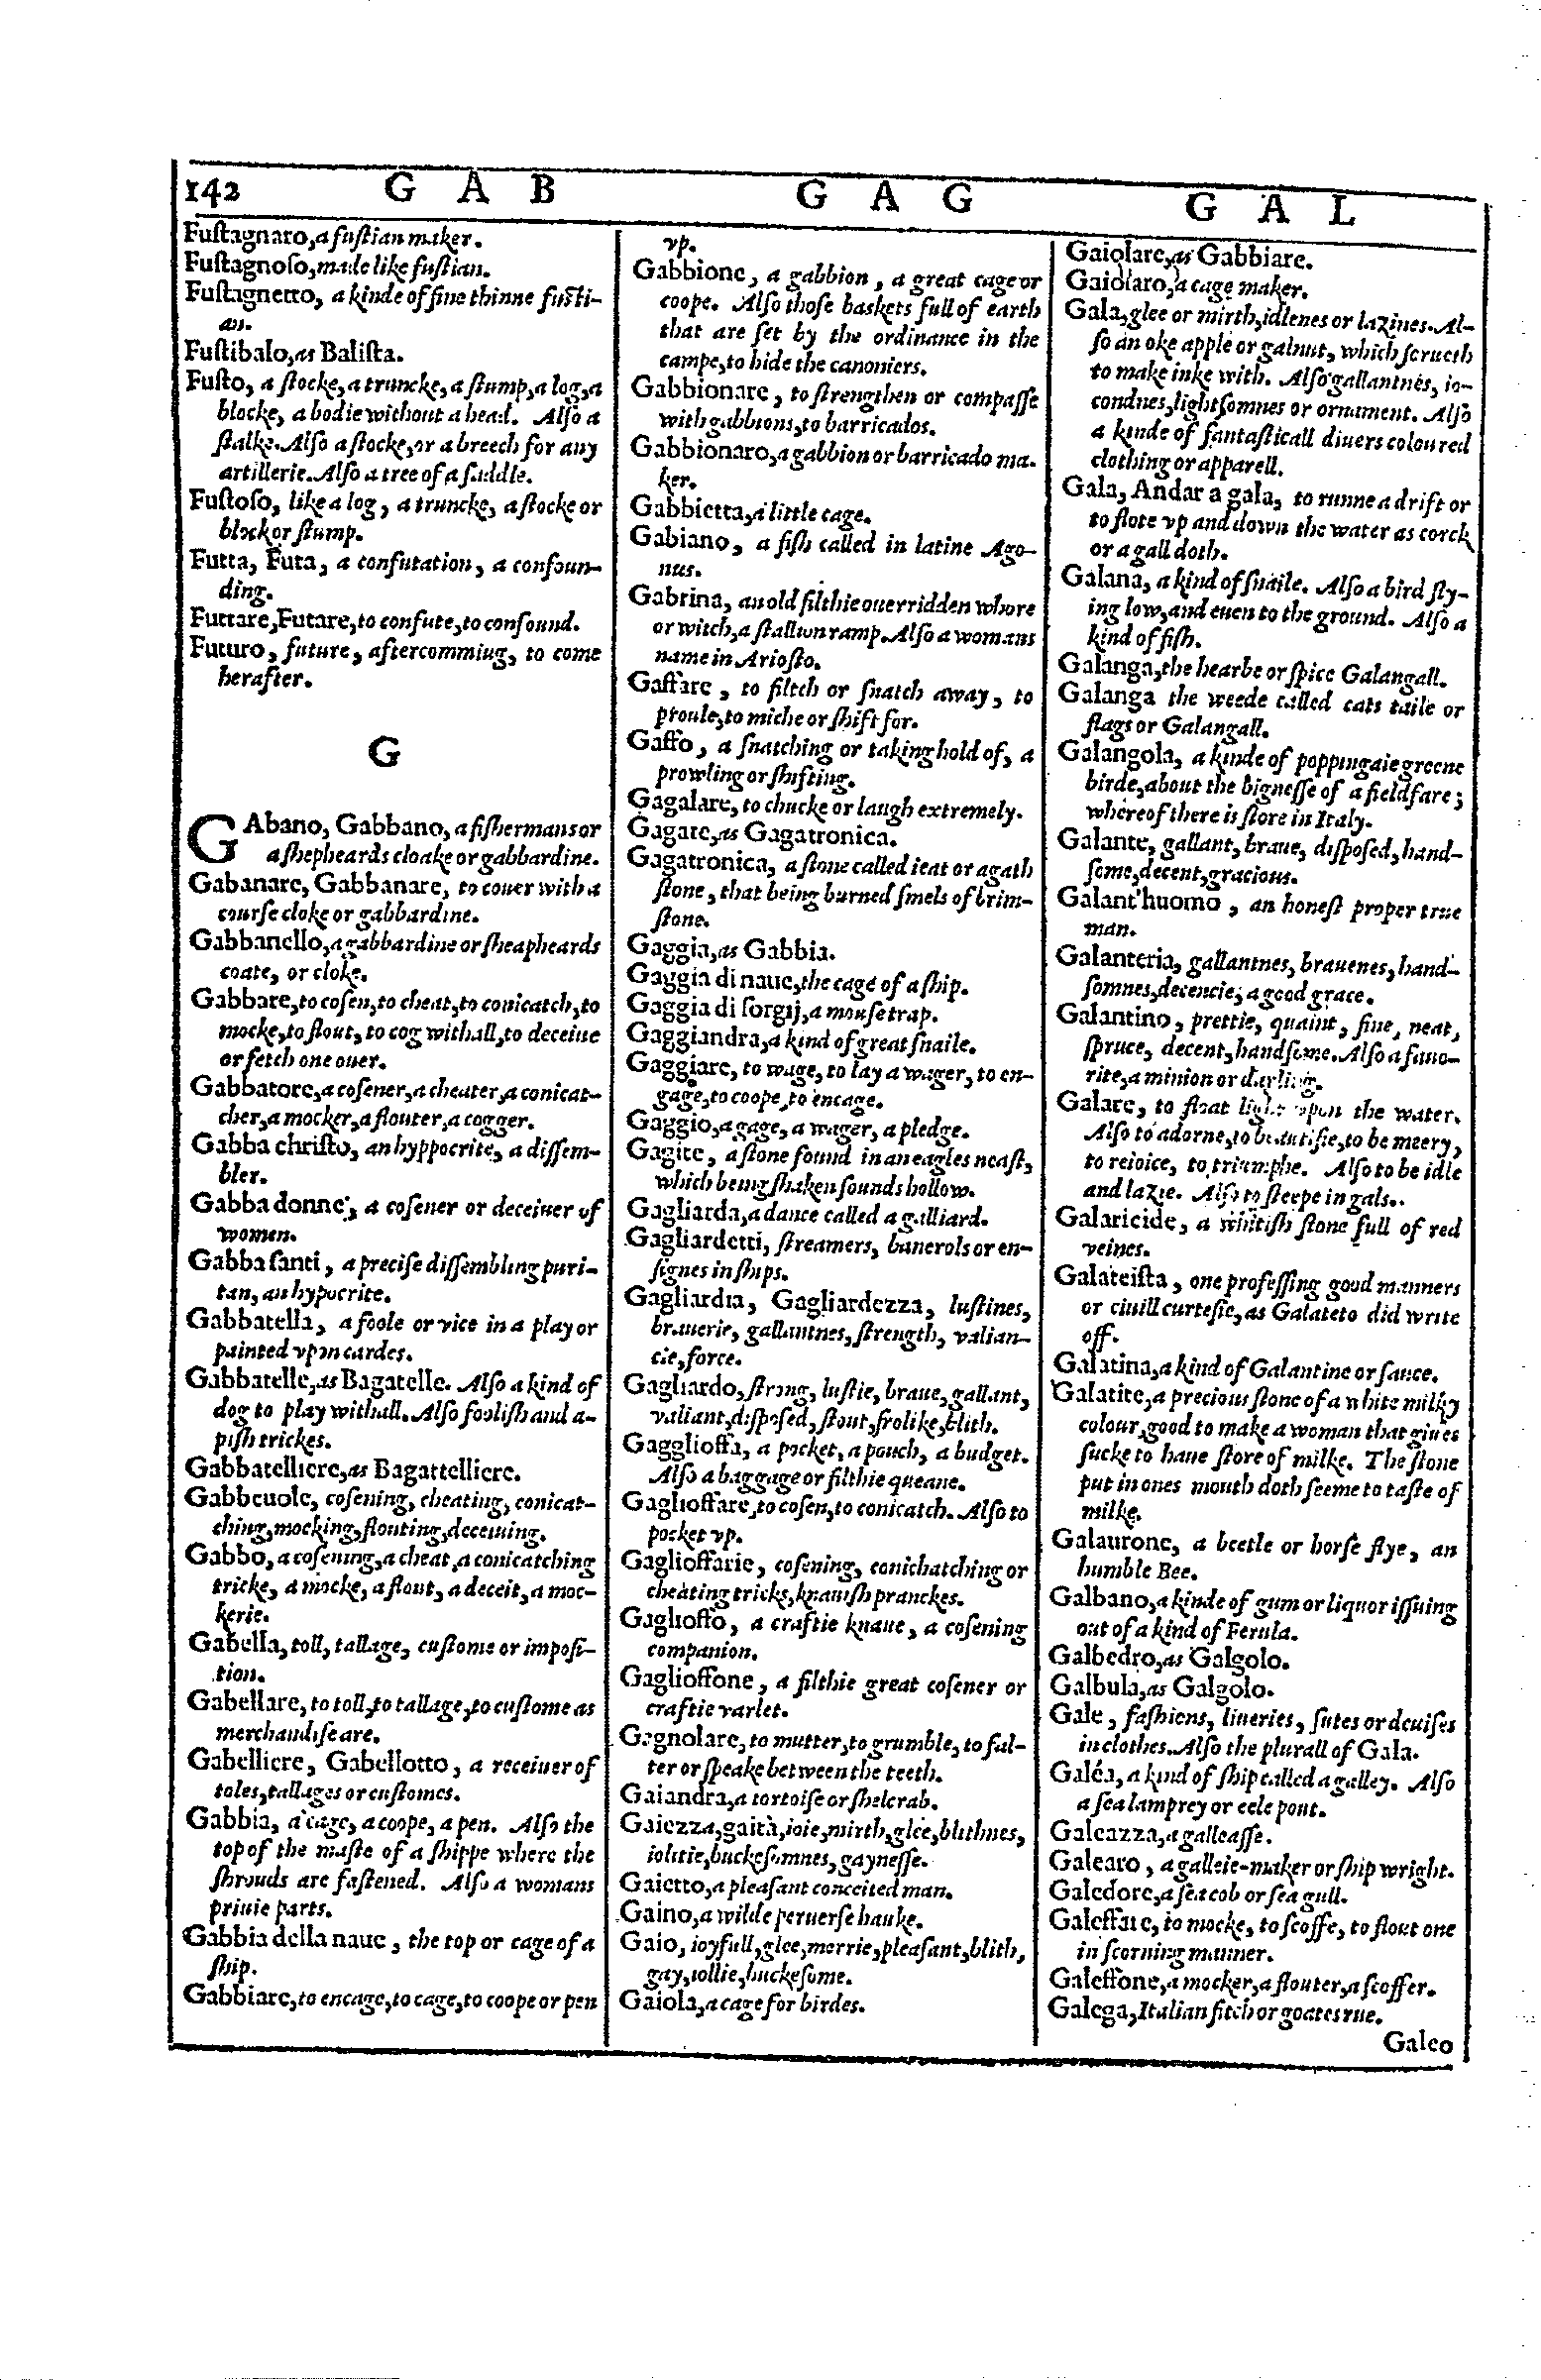 142 G A B G A G G A L
Fuſtagnaro, a fuſtian maker.
Fuſtagnoſo, made like fuſtian.
Fuſtagnetto, a kinde of fine thinne fuſti-
an.
Fuſtibalo, as Baliſta.
Fuſto, a ſtocke, a truncke, a ſtump, a log, a
blocke, a bodie without a head. Alſo a
ſtalke. Alſo a ſtocke, or a breech for any
artillerie. Alſo a tree of a ſaddle.
Fuſtoſo, like a log, a truncke, a ſtocke or
block or ſtump.
Futta, Futa, a confutation, a confoun-
ding.
Futtare, Futare, to confute, to confound.
Futuro, future, aftercomming, to come
herafter.
G
GAbano, Gabbano, a fiſhermans or
a ſhepheards cloake or gabbardine.
Gabanare, Gabbanare, to couer with a
courſe cloke or gabbardine.
Gabbanello, a gabbardine or ſheapheards
coate, or cloke.
Gabbare, to coſen, to cheat, to conicatch, to
mocke, to flout, to cog withall, to deceiue
or fetch one ouer.
Gabbatore, a coſener, a cheater, a conicat-
cher, a mocker, a flouter, a cogger.
Gabba chriſto, an hyppocrite, a diſſem-
bler.
Gabba donne, a coſener or deceiuer of
women.
Gabba ſanti, a preciſe diſſembling puri-
tan, an hypocrite.
Gabbatella, a foole or vice in a play or
painted vpon cardes.
Gabbatelle, as Bagatelle. Alſo a kind of
dog to play withall. Alſo fooliſh and a-
piſh trickes.
Gabbatelliere, as Bagattelliere.
Gabbeuole, coſening, cheating, conicat-
ching, mocking, flouting, deceiuing.
Gabbo, a coſening, a cheat, a conicatching
tricke, a mocke, a flout, a deceit, a moc-
kerie.
Gabella, toll, tallage, cuſtome or impoſi-
tion.
Gabellare, to toll, to tallage, to cuſtome as
merchandiſe are.
Gabelliere, Gabellotto, a receiuer of
toles, tallages or cuſtomes.
Gabbia, a cage, a coope, a pen. Alſo the
top of the maſte of a ſhippe where the
ſhrouds are faſtened. Alſo a womans
priuie parts.
Gabbia della naue, the top or cage of a
ſhip.
Gabbiare, to encage, to cage, to coope or pen
vp.
Gabbione, a gabbion, a great cage or
coope. Alſo thoſe baskets full of earth
that are ſet by the ordinance in the
campe, to hide the canoniers.
Gabbionare, to ſtrengthen or compaſſe
with gabbions, to barricados.
Gabbionaro, a gabbion or barricado ma-
ker.
Gabbietta, a little cage.
Gabiano, a fiſh called in latine Ago-
nus.
Gabrina, an old filthie ouerridden whore
or witch, a ſtallion ramp. Alſo a womans
name in Arioſto.
Gaffare, to filtch or ſnatch away, to
proule, to miche or ſhift for.
Gaffo, a ſnatching or taking hold of, a
prowling or ſhifting.
Gagalare, to chucke or laugh extremely.
Gagate, as Gagatronica.
Gagatronica, a ſtone called ieat or agath
ſtone, that being burned ſmels of brim-
ſtone.
Gaggia, as Gabbia.
Gaggia di naue, the cage of a ſhip.
Gaggia di ſorgij, a mouſe trap.
Gaggiandra, a kind of great ſnaile.
Gaggiare, to wage, to lay a wager, to en-
gage, to coope, to encage.
Gaggio, a gage, a wager, a pledge.
Gagite, a ſtone found in an eagles neaſt,
which being ſhaken ſounds hollow.
Gagliarda, a dance called a galliard.
Gagliardetti, ſtreamers, banerols or en-
ſignes in ſhips.
Gagliardia, Gagliardezza, luſtines,
brauerie, gallantnes, ſtrength, valian-
cie, force.
Gagliardo, ſtrong, luſtie, braue, gallant,
valiant, diſpoſed, ſtout, frolike, blith.
Gagglioffa, a pocket, a pouch, a budget.
Alſo a baggage or filthie queane.
Gaglioffare, to coſen, to conicatch. Alſo to
pocket vp.
Gaglioffarie, coſening, conichatching or
cheating tricks, knauiſh pranckes.
Gaglioffo, a craftie knaue, a coſening
companion.
Gaglioffone, a filthie great coſener or
craftie varlet.
Gagnolare, to mutter, to grumble, to ful-
ter or ſpeake between the teeth.
Gaiandra, a tortoiſe or ſhelcrab.
Gaiezza, gaità, ioie, mirth, glee, blithnes,
iolitie, buckeſomnes, gayneſſe.
Gaietto, a pleaſant conceited man.
Gaino, a wilde peruerſe hauke.
Gaio, ioyfull, glee, merrie, pleaſant, blith,
gay, iollie, buckeſome.
Gaiola, a cage for birdes.
Gaiolare, as Gabbiare.
Gaiolaro, a cage maker.
Gala, glee or mirth, idlenes or lazines. Al-
ſo an oke apple or galnut, which ſerueth
to make inke with. Alſo gallantnes, io-
condnes, lightſomnes or ornament. Alſo
a kinde of fantaſticall diuers coloured
clothing or apparell.
Gala, Andar a gala, to runne a drift or
to flote vp and down the water as corck
or a gall doth.
Galana, a kind of ſnaile. Alſo a bird fly-
ing low, and euen to the ground. Alſo a
kind of fiſh.
Galanga, the hearbe or ſpice Galangall.
Galanga the weede called cats taile or
flags or Galangall.
Galangola, a kinde of poppingaie greene
birde, about the bigneſſe of a fieldfare;
whereof there is ſtore in Italy.
Galante, gallant, braue, diſpoſed, hand-
ſome, decent, gracious.
Galant'huomo, an honeſt proper true
man.
Galanteria, gallantnes, brauenes, hand-
ſomnes, decencie, a good grace.
Galantino, prettie, quaint, fine, neat,
ſpruce, decent, handſome. Alſo a fauo-
rite, a minion or darling.
Galare, to float light vpon the water.
Alſo to adorne, to beautifie, to be meery,
to reioice, to triumphe. Alſo to be idle
and lazie. Alſo to ſteepe in gals.
Galaricide, a whitiſh ſtone full of red
veines.
Galateiſta, one profeſſing good manners
or ciuill curteſie, as Galateto did write
off.
Galatina, a kind of Galantine or ſauce.
Galatite, a precious ſtone of a white milky
colour, good to make a woman that giues
ſucke to haue ſtore of milke. The ſtone
put in ones mouth doth ſeeme to taſte of
milke.
Galaurone, a beetle or horſe flye, an
humble Bee.
Galbano, a kinde of gum or liquor iſſuing
out of a kind of Ferula.
Galbedro, as Galgolo.
Galbula, as Galgolo.
Gale, faſhions, liueries, ſutes or deuiſes
in clothes. Alſo the plurall of Gala.
Galéa, a kind of ſhip called a galley. Alſo
a ſea lamprey or eele pout.
Galeazza, a galleaſſe.
Galearo, a galleie-maker or ſhip wright.
Galedore, a ſea cob or ſea gull.
Galeffare, to mocke, to ſcoffe, to flout one
in ſcorning manner.
Galeffone, a mocker, a flouter, a ſcoffer.
Galega, Italian fitch or goates rue.
Galeo